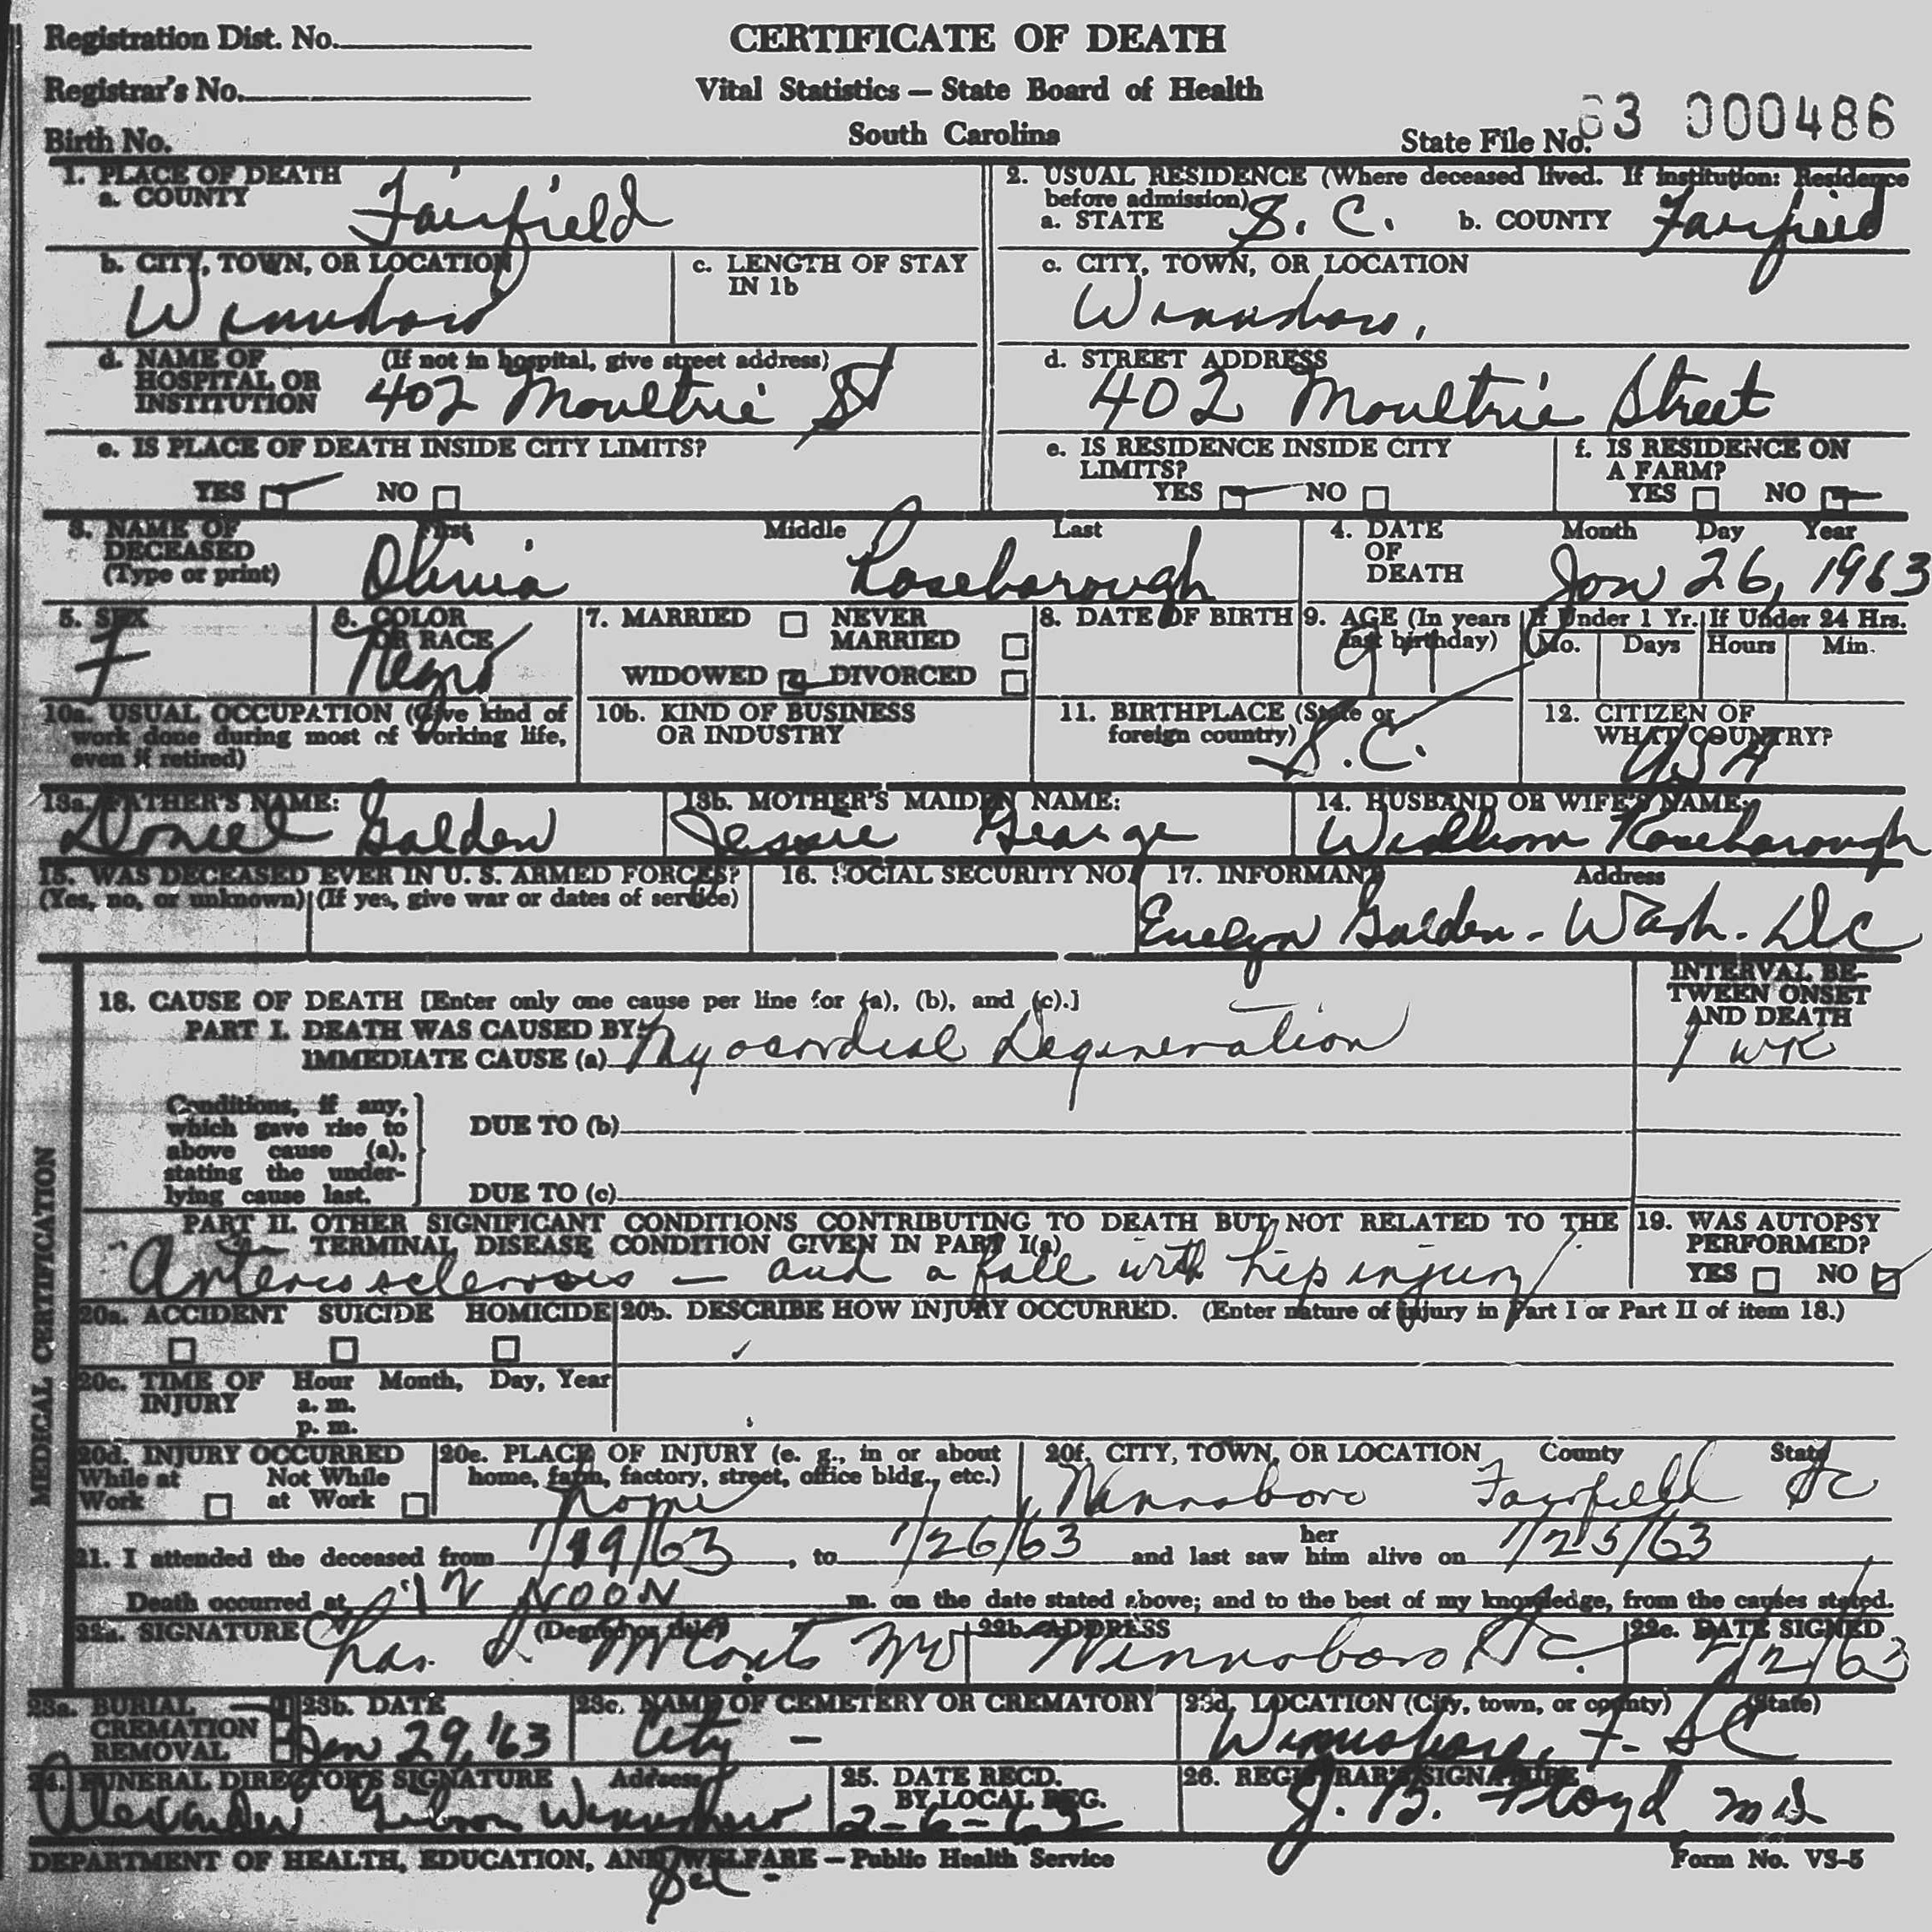 Registration Dist. No.
CERTIFICATE OF DEATH
Registrar's No.
Vital Statistics — State Board of Health
Birth No.
South Carolina
State File No. 63 000486
1. PLACE OF DEATH
a. COUNTY
Fairfield
2. USUAL RESIDENCE (Where deceased lived. If institution: Residence
before admission)
a. STATE S. C. b. COUNTY Fairfield
b. CITY, TOWN, OR LOCATION
Winnsboro
c. LENGTH OF STAY
IN 1b
c. CITY, TOWN, OR LOCATION
Winnsboro,
d. NAME OF (If not in hospital, give street address)
HOSPITAL OR
INSTITUTION 402 Moultrie St
d. STREET ADDRESS
402 Moultrie Street
e. IS PLACE OF DEATH INSIDE CITY LIMITS?
YES NO
e. IS RESIDENCE INSIDE CITY
LIMITS?
YES NO
f. IS RESIDENCE ON
A FARM?
YES NO
3. NAME OF
DECEASED
(Type or print)
First Middle Last
Olivia Roseborough
4. DATE
OF
DEATH
Month Day Year
Jan 26, 1963
5. SEX
F
6. COLOR
OR RACE
Negro
7. MARRIED NEVER
MARRIED
WIDOWED DIVORCED
8. DATE OF BIRTH
9. AGE (In years
last birthday)
91
If Under 1 Yr. If Under 24 Hrs.
Mo. Days Hours Min.
10a. USUAL OCCUPATION (Give kind of
work done during most of working life,
even if retired)
10b. KIND OF BUSINESS
OR INDUSTRY
11. BIRTHPLACE (State or
foreign country)
S.C.
12. CITIZEN OF
WHAT COUNTRY?
USA
13a. FATHER'S NAME:
Daniel Golden
13b. MOTHER'S MAIDEN NAME:
Jessie George
14. HUSBAND OR WIFE'S NAME:
William Roseborough
15. WAS DECEASED EVER IN U. S. ARMED FORCES?
(Yes, no, or unknown) (If yes, give war or dates of service)
16. SOCIAL SECURITY NO.
17. INFORMANT Address
Evelyn Golden - Wash. DC
MEDICAL CERTIFICATION
18. CAUSE OF DEATH [Enter only one cause per line for (a), (b), and (c).]
PART I. DEATH WAS CAUSED BY:
IMMEDIATE CAUSE (a) Myocardial Degeneration
INTERVAL BE-
TWEEN ONSET
AND DEATH
1 wk
Conditions, if any,
which gave rise to
above cause (a),
stating the under-
lying cause last.
DUE TO (b)
DUE TO (c)
PART II. OTHER SIGNIFICANT CONDITIONS CONTRIBUTING TO DEATH BUT NOT RELATED TO THE
TERMINAL DISEASE CONDITION GIVEN IN PART I(a)
Arteriosclerosis — and a fall with hip injury
19. WAS AUTOPSY
PERFORMED?
YES NO
20a. ACCIDENT SUICIDE HOMICIDE
20b. DESCRIBE HOW INJURY OCCURRED. (Enter nature of injury in Part I or Part II of item 18.)
20c. TIME OF Hour Month, Day, Year
INJURY a. m.
p. m.
20d. INJURY OCCURRED
While at Not While
Work at Work
20e. PLACE OF INJURY (e. g., in or about
home, farm, factory, street, office bldg., etc.)
home
20f. CITY, TOWN, OR LOCATION County State
Winnsboro Fairfield SC
21. I attended the deceased from 1/19/63, to 1/26/63 and last saw her him alive on 1/25/63
Death occurred at 12 NOON m. on the date stated above; and to the best of my knowledge, from the causes stated.
22a. SIGNATURE (Degree or title)
Chas. MD
22b. ADDRESS
Winnsboro S.C.
22c. DATE SIGNED
2/2/63
23a. BURIAL
CREMATION
REMOVAL
23b. DATE
Jan 29, '63
23c. NAME OF CEMETERY OR CREMATORY
City -
23d. LOCATION (City, town, or county) (State)
Winnsboro, F- SC
24. FUNERAL DIRECTOR'S SIGNATURE Address
Alexander Winnsboro
25. DATE RECD.
BY LOCAL REG.
2-6-63
26. REGISTRAR'S SIGNATURE
J. B. Floyd MD
DEPARTMENT OF HEALTH, EDUCATION, AND WELFARE — Public Health Service
Form No. VS-5